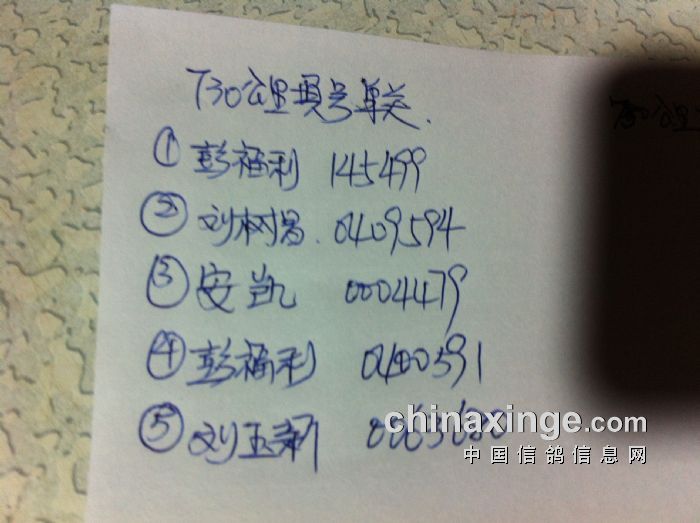 730公里填号单关.
① 彭福利 145499
② 刘树昌. 0409594
③ 安凯 0004479
④ 彭福利 0400391
⑤ 刘玉
chinaxinge.com
中国信鸽信息网
730公里